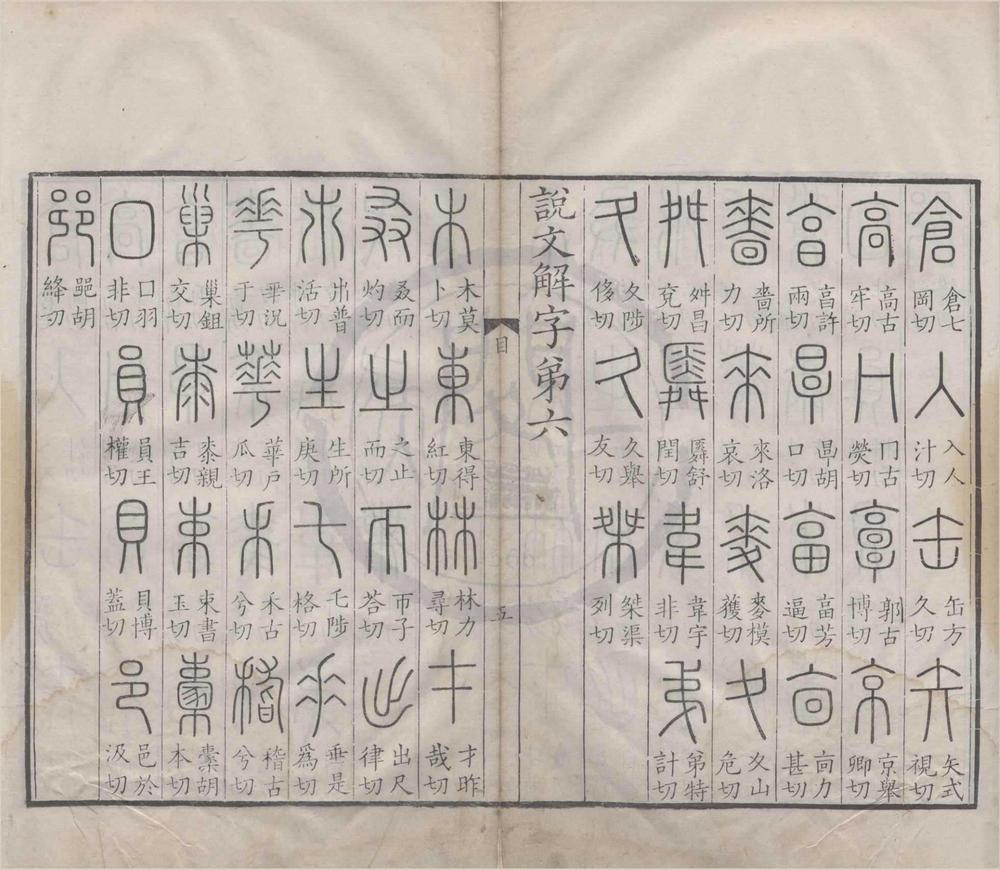 倉倉七岡切入入人汁切缶缶方久切矢矢式視切
高高古牢切冂冂古熒切𩫏郭古博切京京舉卿切
亯亯許兩切㫗㫗胡口切畗畗芳逼切㐭㐭力甚切
嗇嗇所力切來來洛哀切麥麥模獲切夊夊山危切
舛舛昌兗切䑞䑞舒閏切韋韋宇非切弟弟特計切
夂夂陟侈切久久舉友切桀桀渠列切
說文解字第六
目 五
木木莫卜切東東得紅切林林力尋切才才昨哉切
叒叒而灼切之之止而切帀帀子荅切出出尺律切
𣎵𣎵普活切生生所庚切乇乇陟格切𠂹垂是爲切
𠌶𠌶況于切華華戶瓜切禾禾古兮切稽稽古兮切
巢巢鉏交切桼桼親吉切束束書玉切㯻㯻胡本切
囗囗羽非切員員王權切貝貝博蓋切邑邑於汲切
𨛜𨛜胡絳切